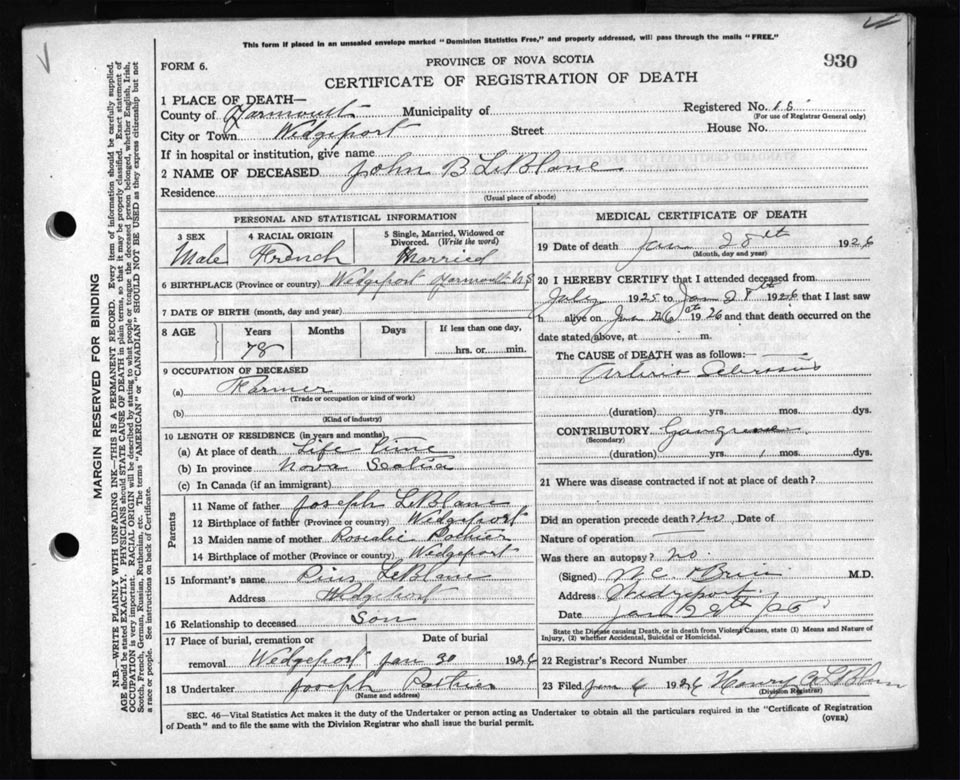 This form if placed in an unsealed envelope marked "Dominion Statistics Free," and properly addressed, will pass through the mails "FREE."
FORM 6.
PROVINCE OF NOVA SCOTIA
930
CERTIFICATE OF REGISTRATION OF DEATH
1 PLACE OF DEATH—
County of Yarmouth Municipality of Registered No. 18
(For use of Registrar General only)
City or Town Wedgeport Street House No.
If in hospital or institution, give name
2 NAME OF DECEASED John B LeBlanc
Residence
(Usual place of abode)
PERSONAL AND STATISTICAL INFORMATION
3 SEX
Male
4 RACIAL ORIGIN
French
5 Single, Married, Widowed or
Divorced. (Write the word)
Married
6 BIRTHPLACE (Province or country) Wedgeport Yarmouth NS
7 DATE OF BIRTH (month, day and year)
8 AGE Years Months Days If less than one day,
78 hrs. or min.
9 OCCUPATION OF DECEASED
(a) Farmer
(Trade or occupation or kind of work)
(b)
(Kind of industry)
10 LENGTH OF RESIDENCE (in years and months)
(a) At place of death Life time
(b) In province Nova Scotia
(c) In Canada (if an immigrant)
Parents
11 Name of father Joseph LeBlanc
12 Birthplace of father (Province or country) Wedgeport
13 Maiden name of mother Rosalie Pothier
14 Birthplace of mother (Province or country) Wedgeport
15 Informant's name Pius LeBlanc
Address Wedgeport
16 Relationship to deceased Son
17 Place of burial, cremation or Date of burial
removal Wedgeport Jan 30 1926
18 Undertaker Joseph Pothier
(Name and address)
MEDICAL CERTIFICATE OF DEATH
19 Date of death Jan 28th 1926
(Month, day and year)
20 I HEREBY CERTIFY that I attended deceased from
July 1925 to Jan 28th 1926 that I last saw
h alive on Jan 26th 1926 and that death occurred on the
date stated above, at m.
The CAUSE of DEATH was as follows:—
Arterio Sclerosis
(duration) yrs. mos. dys.
CONTRIBUTORY Gangrene
(Secondary)
(duration) yrs. 1 mos. dys.
21 Where was disease contracted if not at place of death?
Did an operation precede death? no Date of
Nature of operation
Was there an autopsy? no.
(Signed) M.D.
Address Wedgeport
Date Jan 29th /26
State the Disease causing Death, or in death from Violent Causes, state (1) Means and Nature of
Injury, (2) whether Accidental, Suicidal or Homicidal.
22 Registrar's Record Number
23 Filed 1926 Henry LeBlanc
(Division Registrar)
SEC. 46—Vital Statistics Act makes it the duty of the Undertaker or person acting as Undertaker to obtain all the particulars required in the "Certificate of Registration
of Death" and to file the same with the Division Registrar who shall issue the burial permit.
(OVER)
MARGIN RESERVED FOR BINDING
N.B.—WRITE PLAINLY WITH UNFADING INK—THIS IS A PERMANENT RECORD. Every item of information should be carefully supplied.
AGE should be stated EXACTLY. PHYSICIANS should STATE CAUSE OF DEATH in plain terms, so that it may be properly classified. Exact statement of
OCCUPATION is very important. RACIAL ORIGIN will be described by stating to what people or tongue the deceased person belonged, whether English, Irish,
Scotch, French, German, Russian, Ruthenian, etc. The terms "AMERICAN" or "CANADIAN" SHOULD NOT BE USED as they express citizenship but not
a race or people. See instructions on back of Certificate.